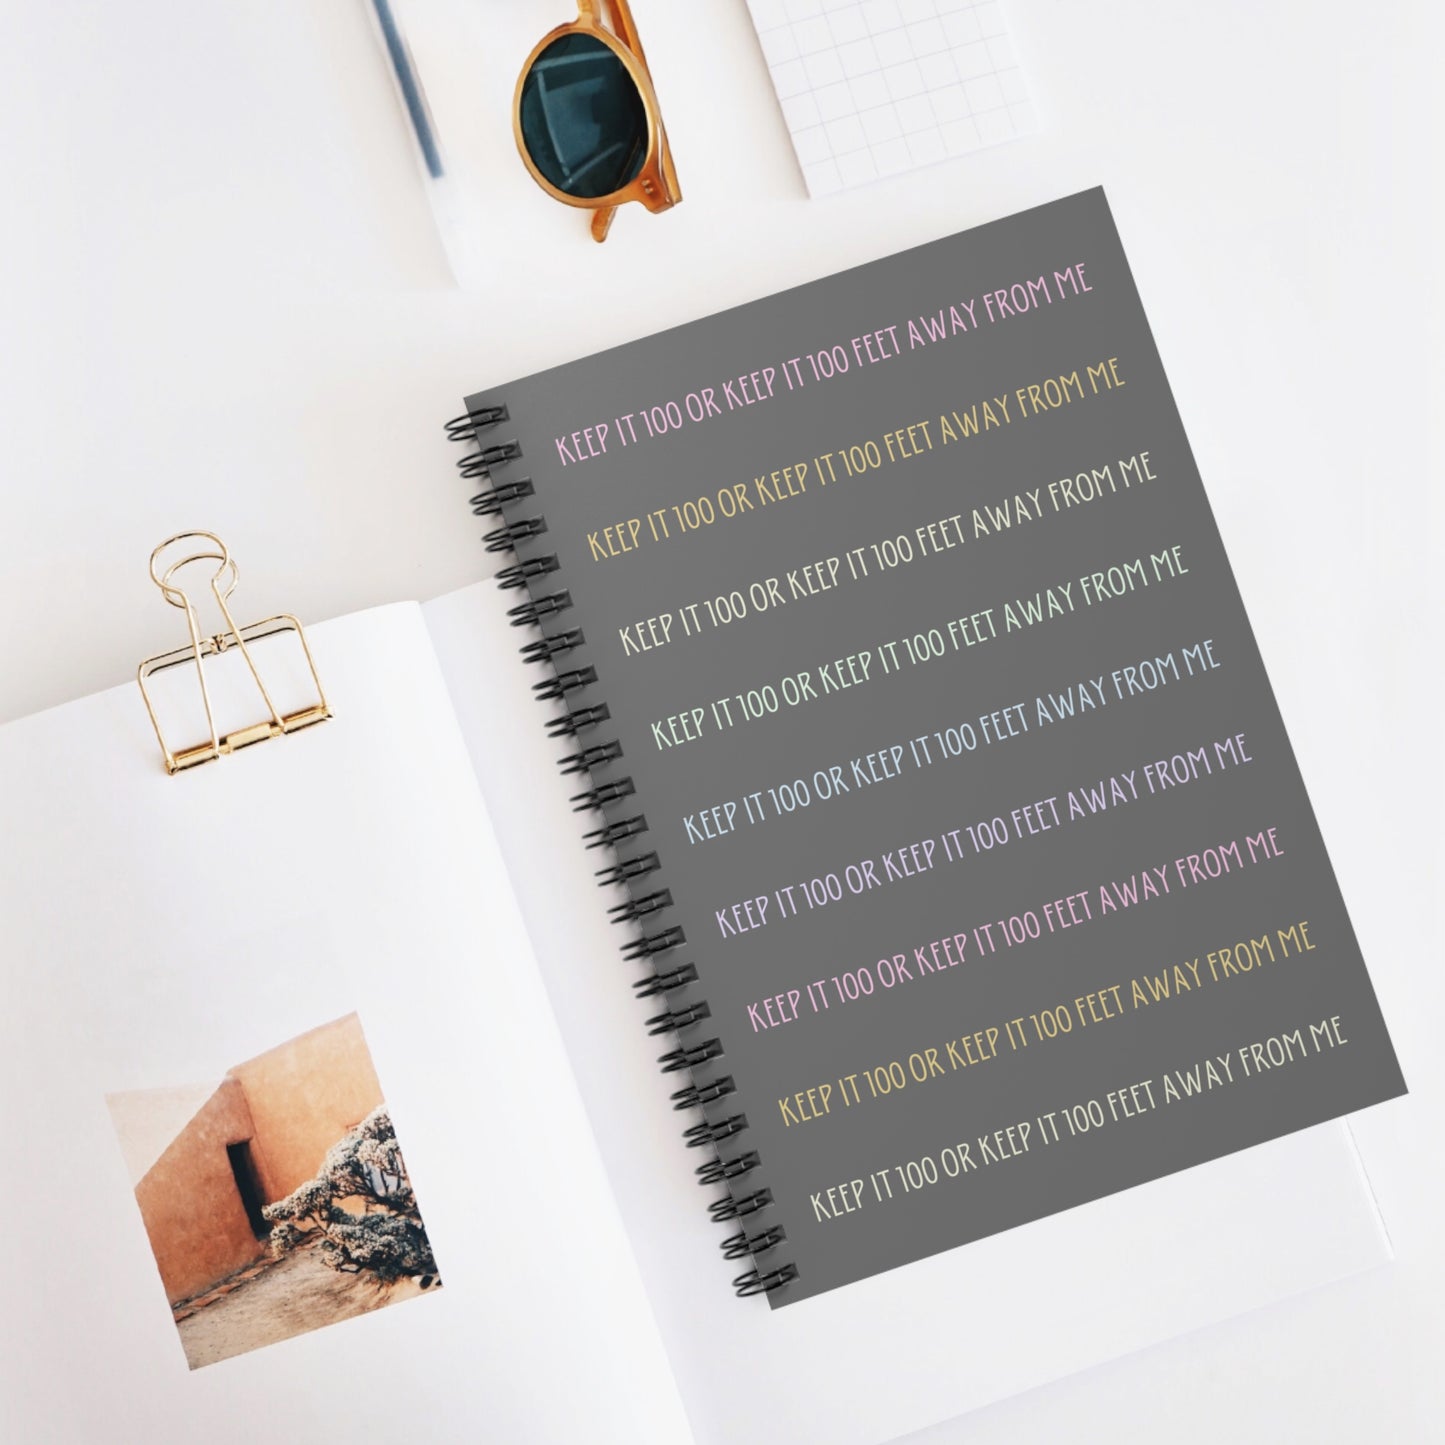 KEEP IT 100 OR KEEP IT 100 FEET AWAY FROM ME
KEEP IT 100 OR KEEP IT 100 FEET AWAY FROM ME
KEEP IT 100 OR KEEP IT 100 FEET AWAY FROM ME
KEEP IT 100 OR KEEP IT 100 FEET AWAY FROM ME
KEEP IT 100 OR KEEP IT 100 FEET AWAY FROM ME
KEEP IT 100 OR KEEP IT 100 FEET AWAY FROM ME
KEEP IT 100 OR KEEP IT 100 FEET AWAY FROM ME
KEEP IT 100 OR KEEP IT 100 FEET AWAY FROM ME
KEEP IT 100 OR KEEP IT 100 FEET AWAY FROM ME